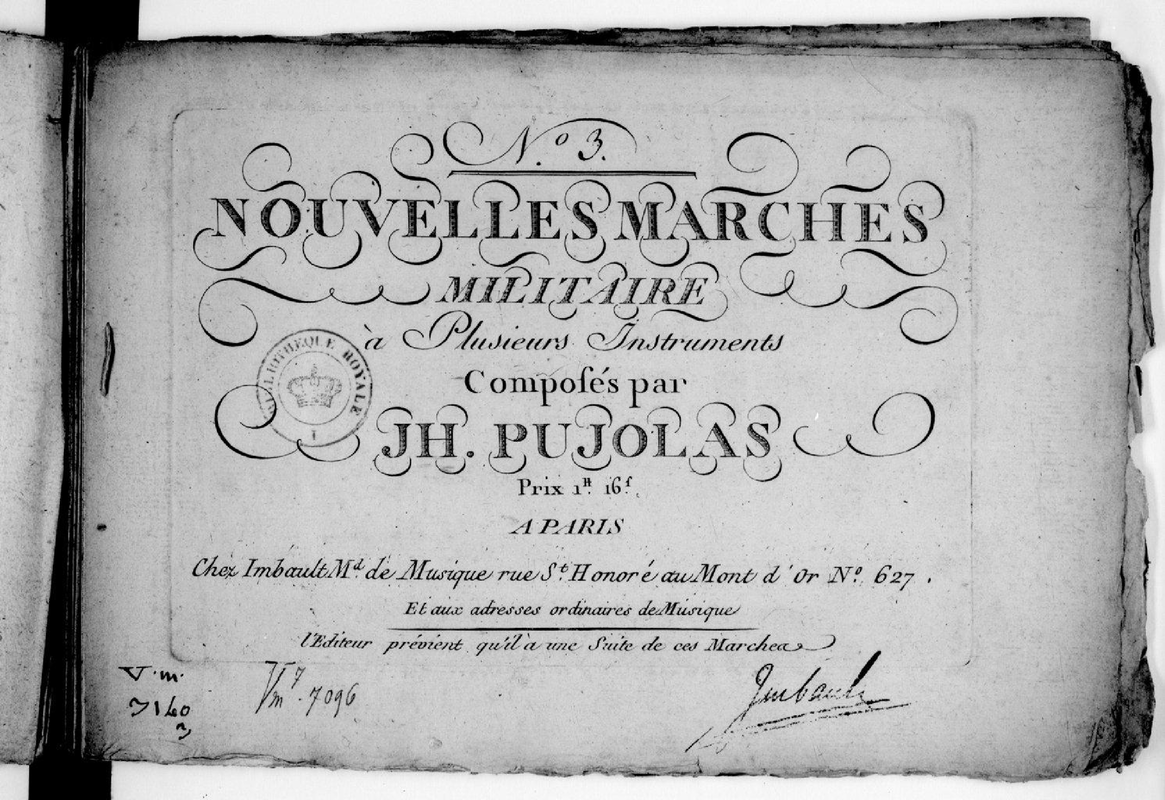 N.º 3.
NOUVELLES MARCHES
MILITAIRE
à Plusieurs Instruments
Composés par
JH. PUJOLAS
Prix 1ᵗᵗ 16ˢ.
A PARIS
Chez Imbault Mᵈ. de Musique rue Sᵗ. Honoré au Mont d'Or Nº. 627.
Et aux adresses ordinaires de Musique
l'Editeur prévient qu'il à une Suite de ces Marchea
BIBLIOTHEQUE ROYALE
V.m.
Vm⁷. 7096
Imbault